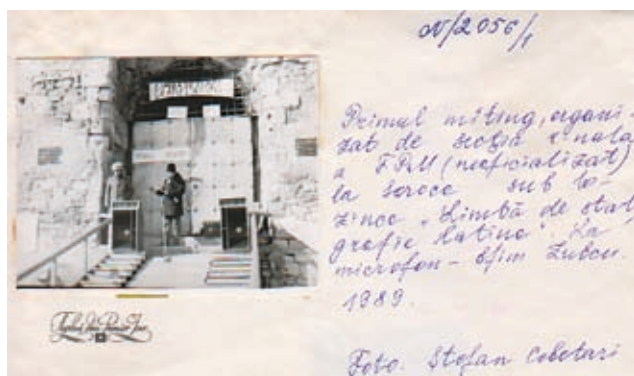 N/2056/1
Primul miting, organi-
zat de secția r-nala
a FPM (neoficializat)
la Soroca sub lo-
zinca „Limbă de stat,
grafie latină". La
microfon - Efim Zubcu.
1989.
Foto. Ștefan Cebotari